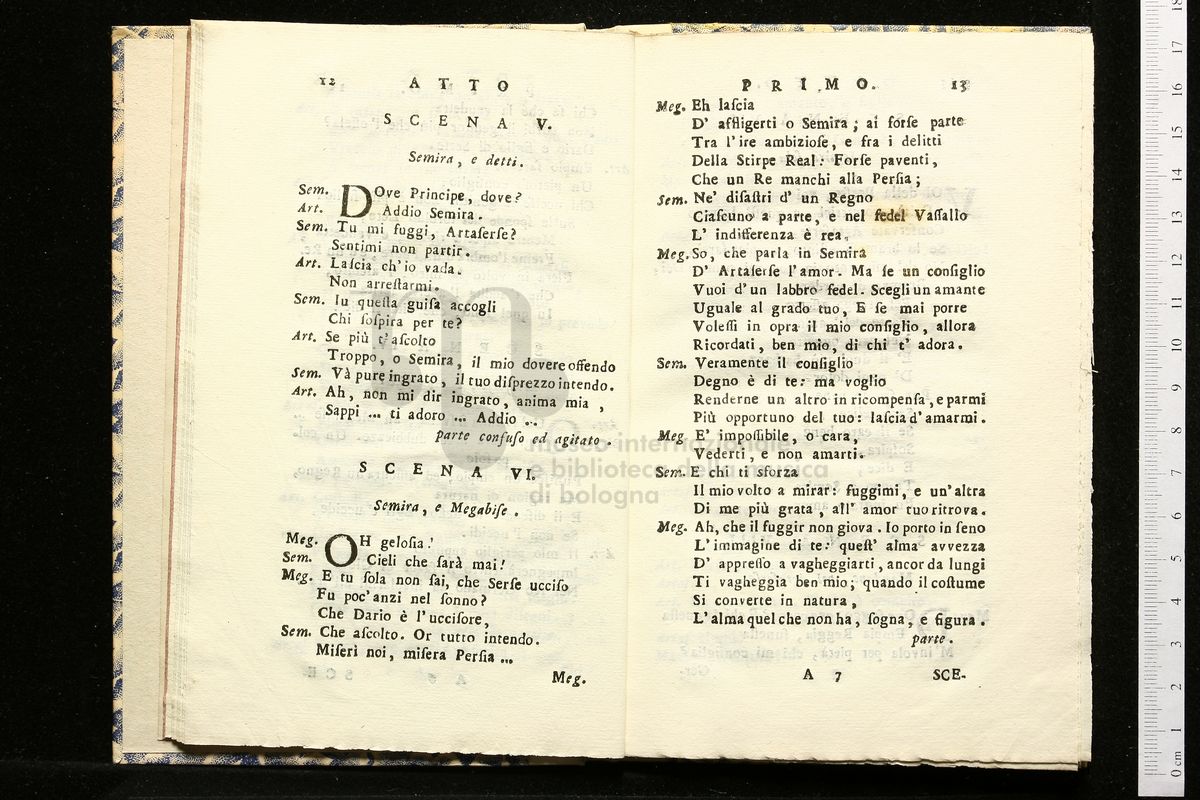 12 ATTO
SCENA V.
Semira, e detti.
Sem. DOve Principe, dove?
Art. Addio Semira.
Sem. Tu mi fuggi, Artaſerſe?
Sentimi non partir.
Art. Laſcia ch'io vada.
Non arreſtarmi.
Sem. Iu queſta guiſa accogli
Chi ſoſpira per te?
Art. Se più t'aſcolto
Troppo, o Semira, il mio dovere offendo
Sem. Và pure ingrato, il tuo diſprezzo intendo.
Art. Ah, non mi dir ingrato, anima mia,
Sappi ... ti adoro ... Addio ...
parte confuſo ed agitato.
SCENA VI.
Semira, e Megabiſe.
Meg. OH geloſia!
Sem. Cieli che ſarà mai!
Meg. E tu ſola non ſai, che Serſe ucciſo
Fu poc'anzi nel ſonno?
Che Dario è l'ucciſore,
Sem. Che aſcolto. Or tutto intendo.
Miſeri noi, miſera Perſia ...
Meg.
PRIMO. 13
Meg. Eh laſcia
D' affligerti o Semira; ai forſe parte
Tra l'ire ambizioſe, e fra i delitti
Della Stirpe Real: Forſe paventi,
Che un Re manchi alla Perſia;
Sem. Ne' diſaſtri d' un Regno
Ciaſcuno a parte, e nel fedel Vaſſallo
L' indifferenza è rea.
Meg. So, che parla in Semira
D' Artaſerſe l'amor. Ma ſe un conſiglio
Vuoi d'un labbro fedel. Scegli un amante
Uguale al grado tuo, E ſe mai porre
Voleſſi in opra il mio conſiglio, allora
Ricordati, ben mio, di chi t' adora.
Sem. Veramente il conſiglio
Degno è di te: ma voglio
Renderne un altro in ricompenſa, e parmi
Più opportuno del tuo: laſcia d'amarmi.
Meg E' impoſſibile, o cara,
Vederti, e non amarti.
Sem. E chi ti sforza
Il mio volto a mirar: fuggimi, e un'altra
Di me più grata, all' amor tuo ritrova.
Meg. Ah, che il fuggir non giova. Io porto in ſeno
L'immagine di te: queſt' alma avvezza
D' appreſſo a vagheggiarti, ancor da lungi
Ti vagheggia ben mio; quando il coſtume
Si converte in natura,
L'alma quel che non ha, ſogna, e figura.
parte.
A 7 SCE-
museo internazionale
e biblioteca della musica
di bologna